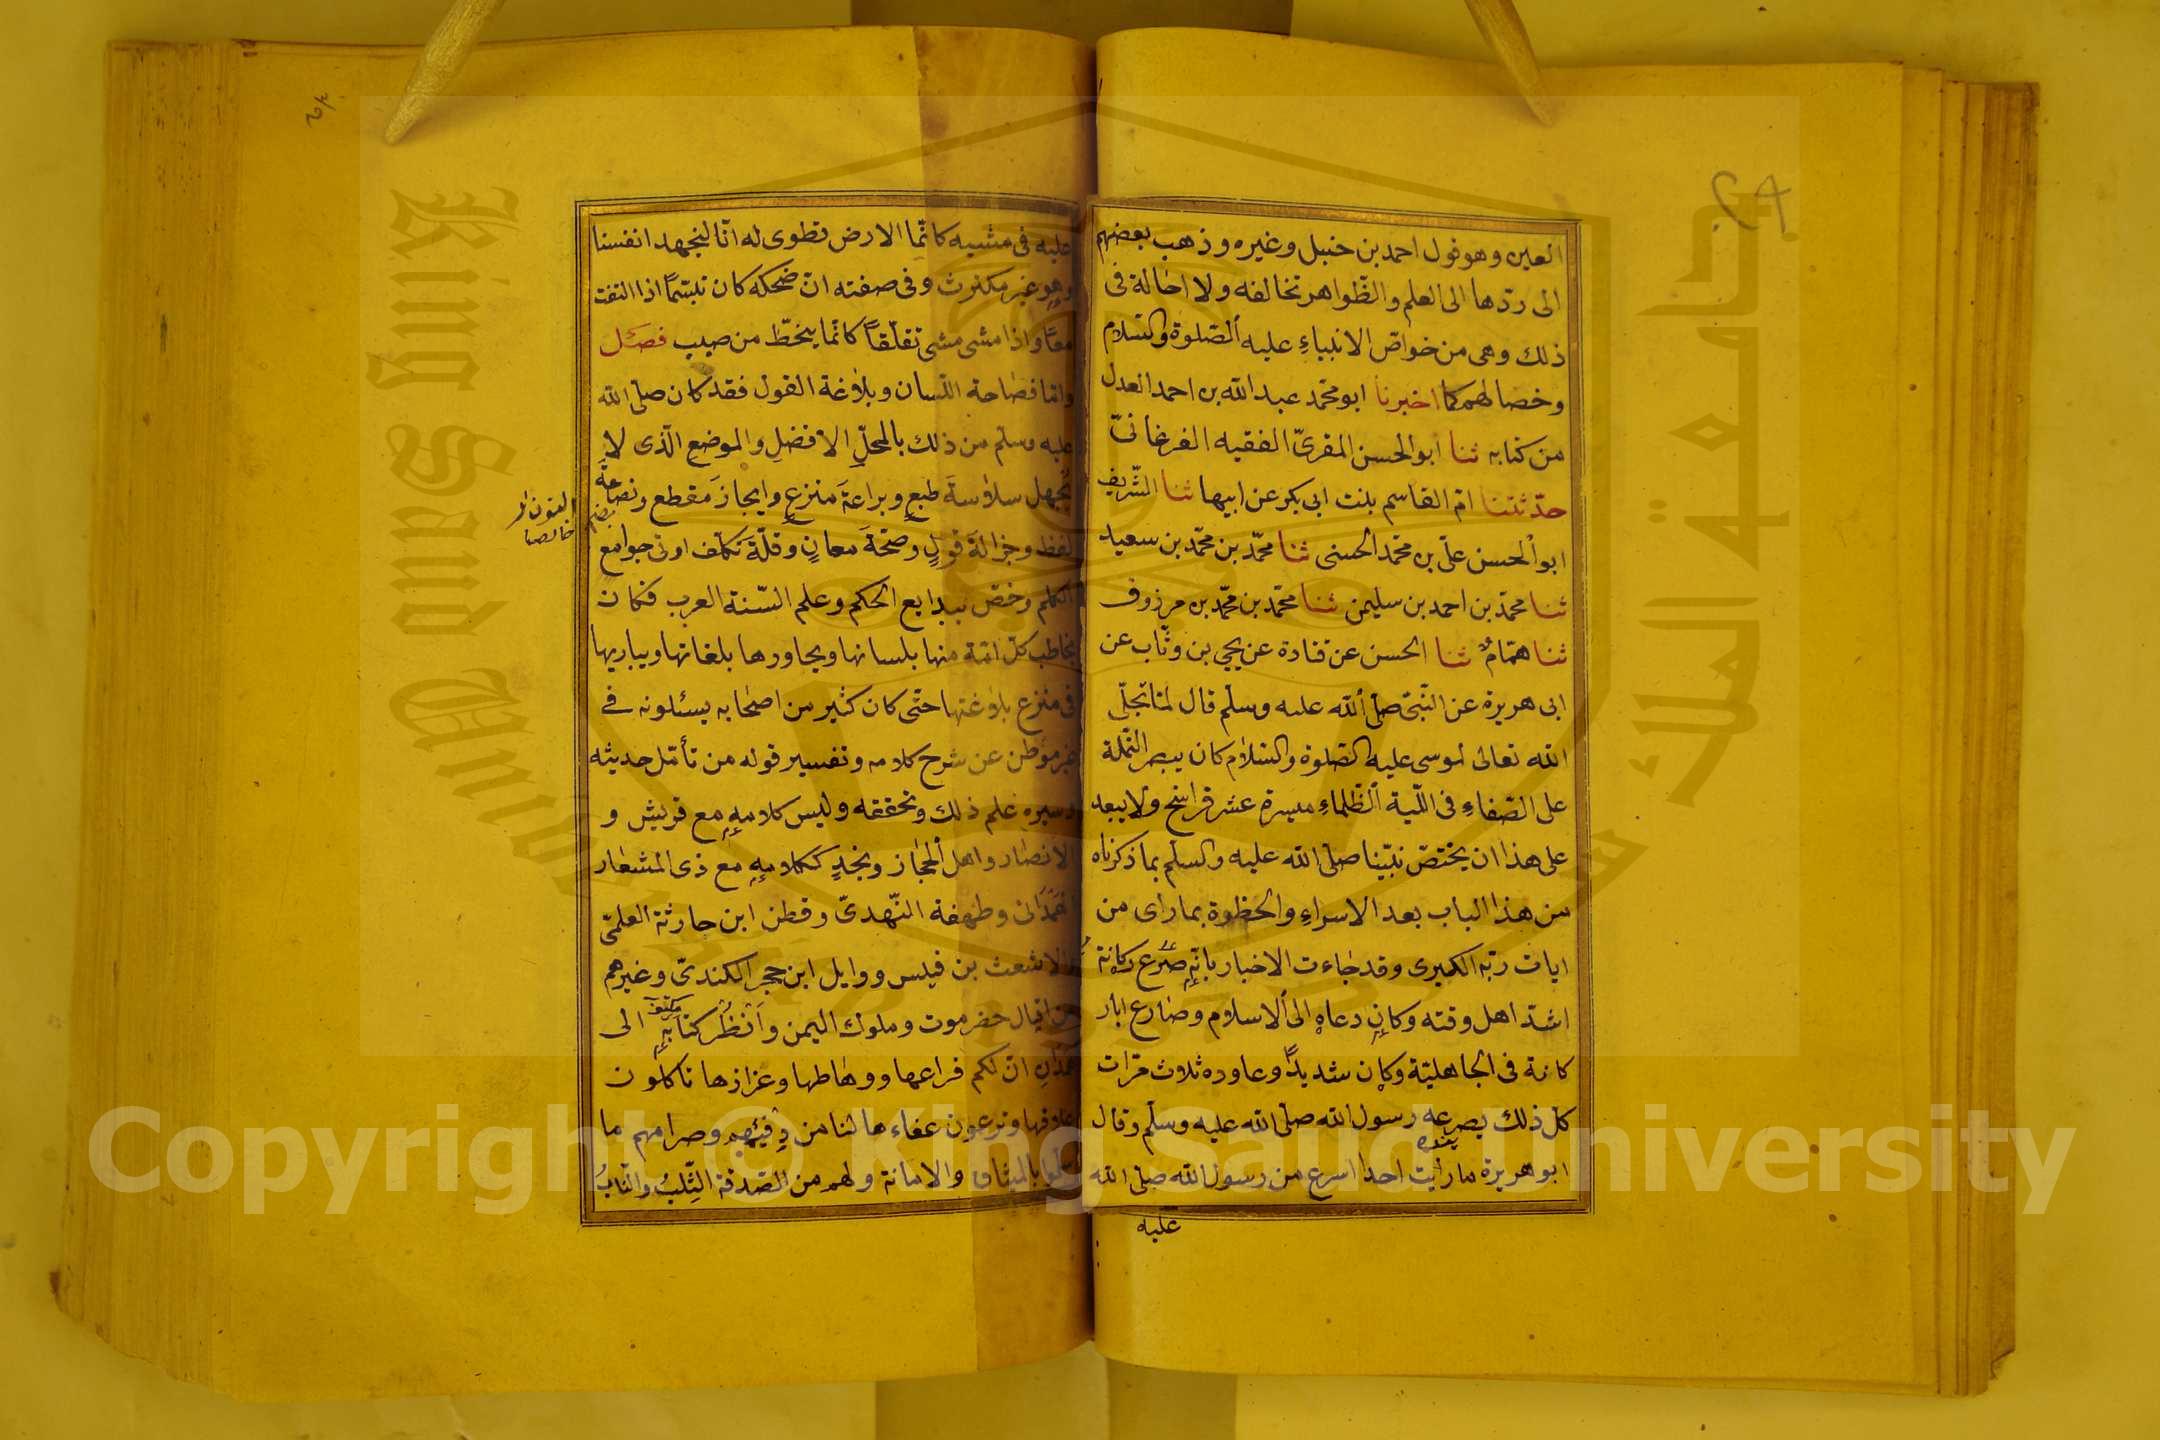 العين وهو قول احمد بن حنبل وغيره وذهب بعضهم
الى ردّها الى العلم والظّواهر تخالفه ولا احالة فى
ذلك وهى من خواصّ الانبياءِ عليه الصّلوة والسّلام
وخصالهم كما اخبرنا ابو محمّد عبد الله بن احمد العدل
من كتابه ثنا ابو الحسن المقرىّ الفقيه الفرغانىّ
حدّثتنا امّ القاسم بنت ابى بكر عن ابيها ثنا الشّريف
ابو الحسن علىّ بن محمّد الحسنى ثنا محمّد بن محمّد بن سعيد
ثنا محمّد بن احمد بن سليمن ثنا محمّد بن محمّد بن مرزوق
ثنا همّام ثنا الحسن عن قتادة عن يحيى بن وثّاب عن
ابى هريرة عن النّبىّ صلّى الله عليه وسلّم قال لمّا تجلّى
الله تعالى لموسى عليه الصّلوة والسّلام كان يبصر النّملة
على الصّفاءِ فى اللّيلة الظّلماءِ مسيرة عشر فراسخ ولا يبعد
على هذا ان يختصّ نبيّنا صلّى الله عليه والسلّم بما ذكرناه
من هذا الباب بعد الاسراءِ والحظوة بما راى من
ايات ربّه الكبرى وقد جاءت الاخبار بانّه صرع ركانة
اشدّ اهل وقته وكان دعاه الى الاسلام وصارع ابار
كانة فى الجاهليّة وكان شديدًا وعاوده ثلاث مرّات
كلّ ذلك يصرعه رسول الله صلّى الله عليه وسلّم وقال
ابو هريرة ما رايت احدا اسرع من رسول الله صلّى الله
عليه
عليه فى مشيه كانّما الارض تطوى له انّا لنجهد انفسنا
وهو غير مكترث وفى صفته انّ ضحكه كان تبسّمًا اذا التفت
معًا واذا مشى مشى تقلّعًا كانّما ينحطّ من صبب فصل
وامّا فصاحة اللّسان وبلاغة القول فقد كان صلّى الله
عليه وسلّم من ذلك بالمحلّ الافضل والموضع الّذى لا
يُجهل سلاسةَ طبعٍ وبراعةَ منزعٍ وايجازَ مقطع ونصاعةَ
لفظ وجزالة قولٍ وصحّةَ معانٍ وقلّةَ تكلّف اوتى جوامع
الكلم وخصّ ببدايع الحكم وعلم السنة العرب فكان
يخاطب كلّ امّة منها بلسانها ويحاورها بلغاتها ويباريها
فى منزع بلاغتها حتّى كان كثير من اصحابه يسئلونه فى
غير موطن عن شرح كلامه وتفسير قوله من تأمّل حديثه
وسيره علم ذلك وتحققه وليس كلامه مع قريش و
الانصار واهل الحجاز ونجدٍ ككلامه مع ذى المشعار
الهَمْدَانى وطهفة النّهدىّ وقطن ابن حارثة العلمىّ
والاشعث بن قيس ووايل ابن حجر الكندىّ وغيرهم
من اقيال حضرموت وملوك اليمن وانظُر كتابه الى
همدان انّ لكم فراعها ووهاطها وعزازها تاكلون
علافها وترعون عفاءها لنا من دِفئهم وصرامهم ما
سلّموا بالميثاق والامانة ولهم من الصّدقة الثِّلبُ والنّابُ
King Saud University
جامعة الملك سعود
Copyright © King Saud University